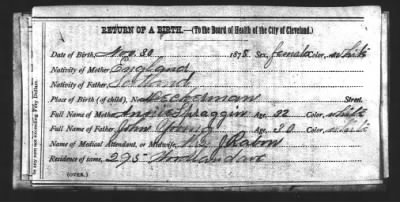 RETURN OF A BIRTH.—(To the Board of Health of the City of Cleveland.)
Date of Birth, Nov. 30 1878 Sex, female Color, white
Nativity of Mother, England
Nativity of Father,
Place of Birth (of child), No. Street.
Full Name of Mother, Annie Spraggin Age. 22 Color, white
Full Name of Father, John Young Age, 30 Color, white
Name of Medical Attendant, or Midwife, J Rabon
Residence of same, 295 Woodland ave
(OVER.)
not exceeding Fifty Dollars.